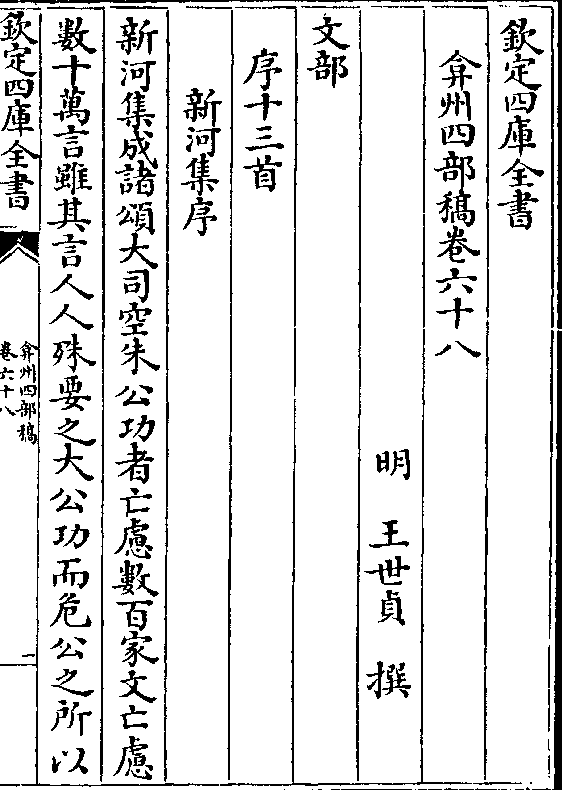 欽定四庫全書
弇州四部稿卷六十八
明 王世貞 撰
文部
序十三首
新河集序
新河集成諸頌大司空朱公功者亡慮數百家文亡慮
數十萬言雖其言人人殊要之大公功而危公之所以
欽定四庫全書
弇州四部稿
卷六十八
一